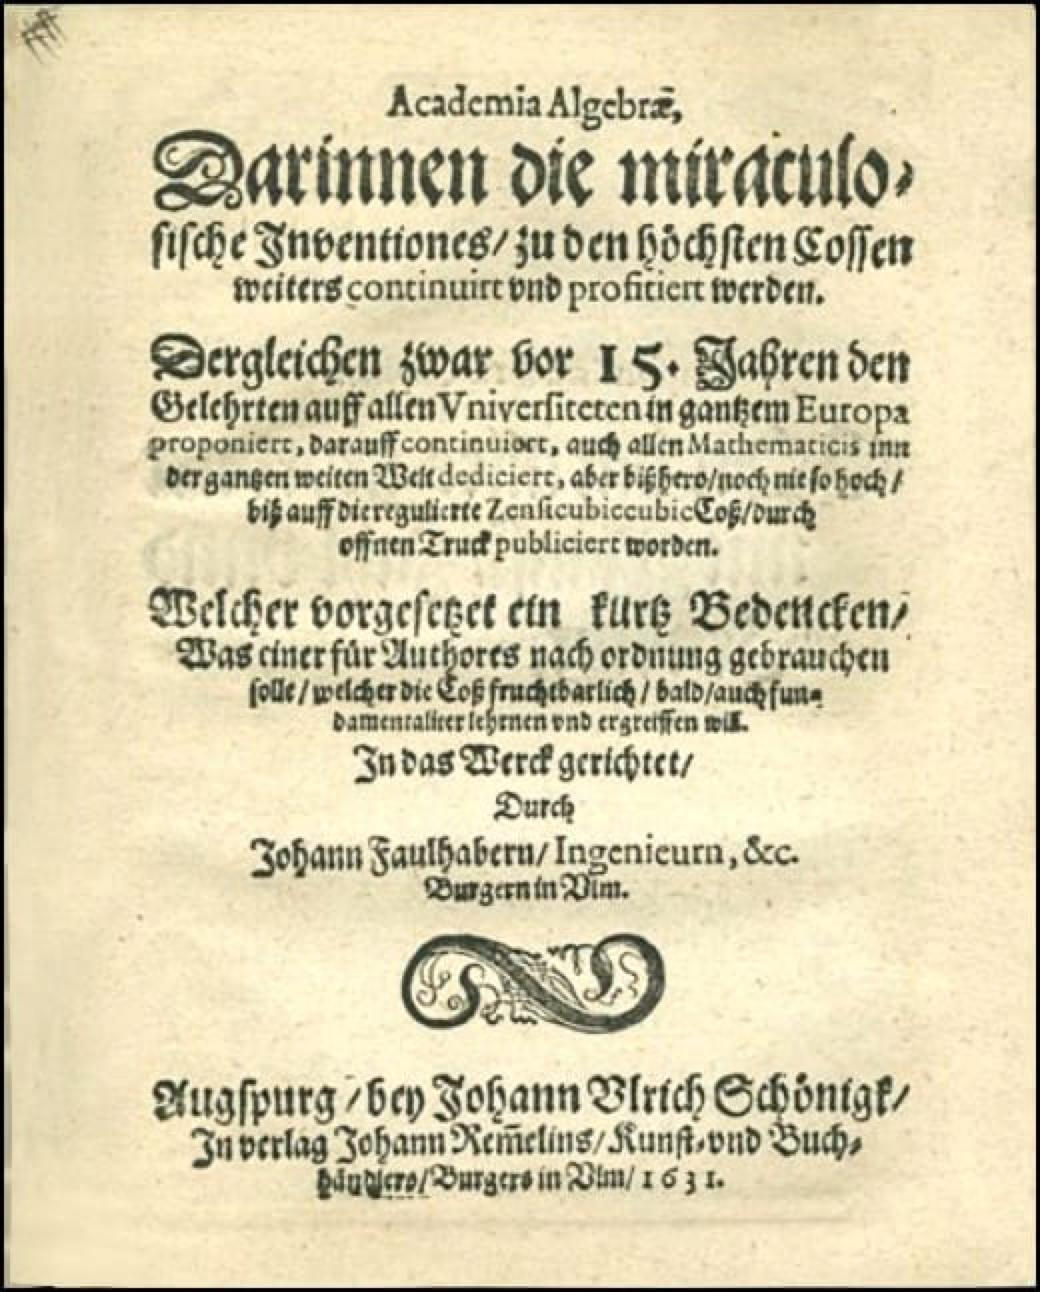 Academia Algebræ,
Darinnen die miraculo-
sische Inventiones/ zu den höchsten Cossen
weiters continuirt vnd profitiert werden.
Dergleichen zwar vor 15. Jahren den
Gelehrten auff allen Vniversiteten in gantzem Europa
proponiert, darauff continuiort, auch allen Mathematicis inn
der gantzen weiten Welt dediciert, aber bißhero/ noch nie so hoch/
biß auff die regulierte Zensicubiccubic Coß/ durch
offnen Truck publiciert worden.
Welcher vorgesetzet ein kurtz Bedencken/
Was einer für Authores nach ordnung gebrauchen
solle/ welcher die Coß fruchtbarlich/ bald/ auch fun-
damentaliter lehrnen vnd ergreiffen will.
In das Werck gerichtet/
Durch
Johann Faulhabern/ Ingenieurn, &c.
Burgern in Vlm.
Augspurg/ bey Johann Vlrich Schönigk/
In verlag Johann Rem̃elins/ Kunst- vnd Buch-
händlers/ Burgers in Vlm/ 1631.